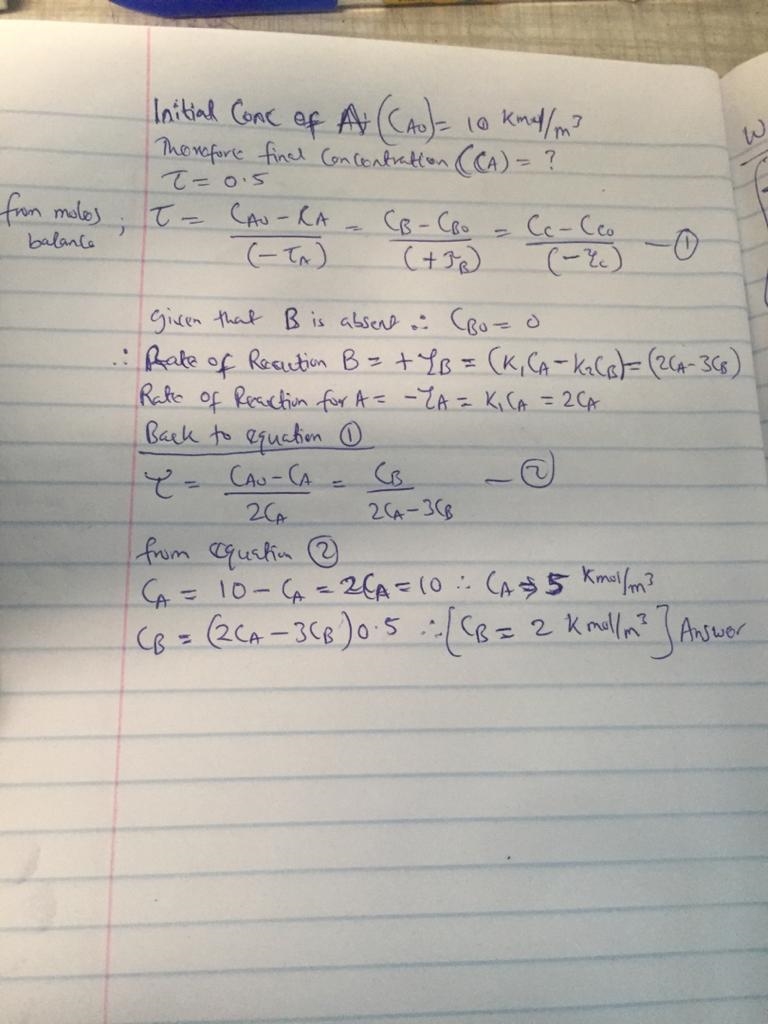 Initial Conc of A (CAO) = 10 Kmol/m³
Therefore final Concentration (CA) = ?
τ = 0.5
from moles balance ; τ = (CAO - CA)/(-rA) = (CB - CBO)/(+rB) = (CC - CCO)/(-rC) — ①
given that B is absent ∴ CBO = 0
∴ Rate of Reaction B = + rB = (K1CA - K2CB) = (2CA - 3CB)
Rate of Reaction for A = - rA = K1CA = 2CA
Back to equation ①
τ = (CAO - CA)/2CA = CB/(2CA - 3CB) — ②
from equation ②
CA = 10 - CA = 2CA = 10 ∴ CA = 5 Kmol/m³
CB = (2CA - 3CB)0.5 ∴ [CB = 2 Kmol/m³] Answer
W